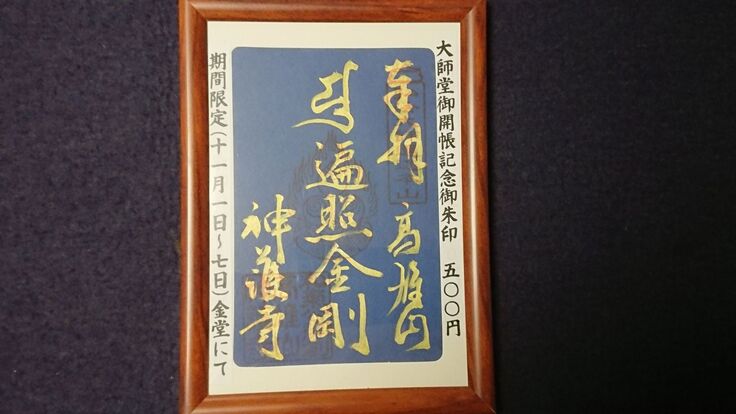 大師堂御開帳記念御朱印　五〇〇円
奉拝　高雄山
遍照金剛
神護寺
期間限定（十一月一日～七日）金堂にて